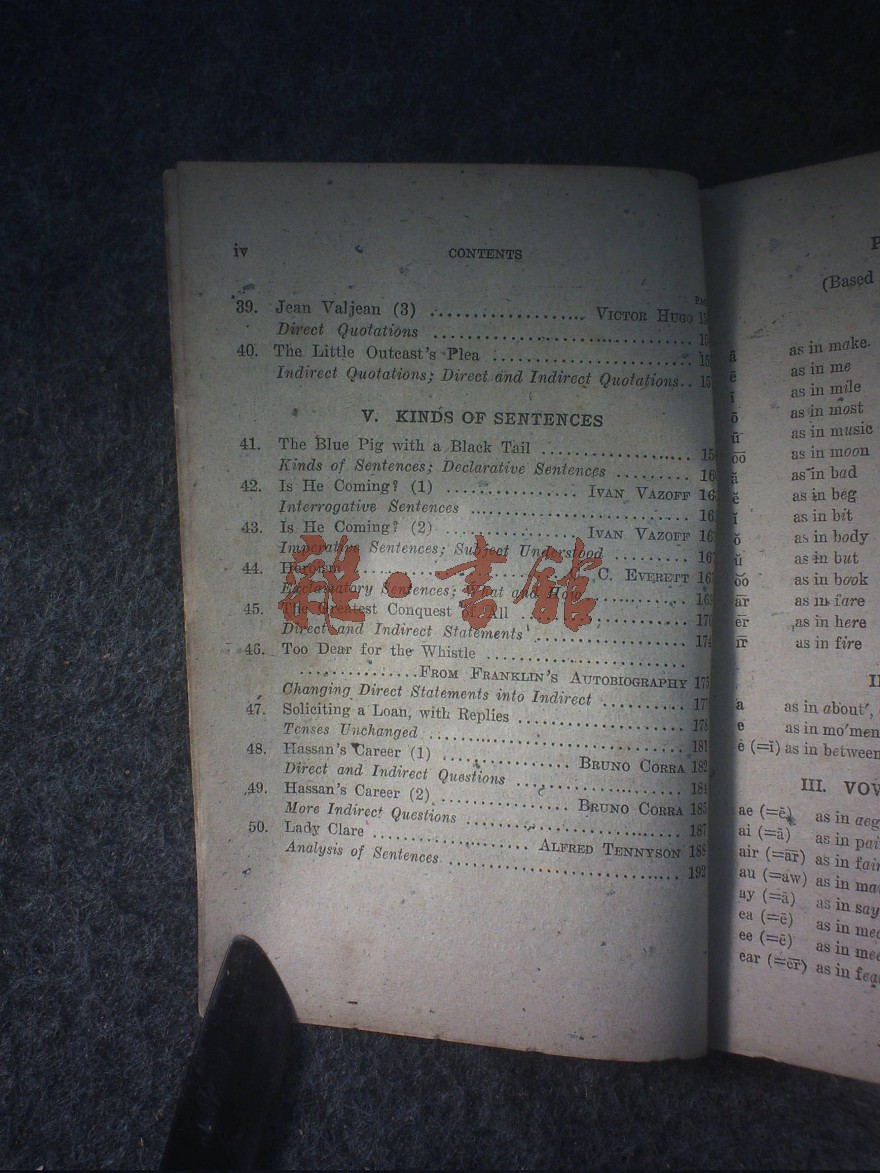 iv CONTENTS
39. Jean Valjean (3) .................. VICTOR HUGO
Direct Quotations ..............................
40. The Little Outcast's Plea ........................
Indirect Quotations; Direct and Indirect Quotations..
V. KINDS OF SENTENCES
41. The Blue Pig with a Black Tail ..................
Kinds of Sentences; Declarative Sentences .........
42. Is He Coming? (1) ................ IVAN VAZOFF
Interrogative Sentences ..........................
43. Is He Coming? (2) ................ IVAN VAZOFF
Imperative Sentences; Subject Understood .........
44. Heroism .............................. C. EVERETT
Exclamatory Sentences; What and How ............
45. The Greatest Conquest of All ................... 170
Direct and Indirect Statements .................. 174
46. Too Dear for the Whistle ........................
..............FROM FRANKLIN'S AUTOBIOGRAPHY 175
Changing Direct Statements into Indirect .......... 177
47. Soliciting a Loan, with Replies .................. 178
Tenses Unchanged .............................. 181
48. Hassan's Career (1) ................ BRUNO CORRA 182
Direct and Indirect Questions .................... 184
49. Hassan's Career (2) ................ BRUNO CORRA 185
More Indirect Questions ........................ 187
50. Lady Clare .................... ALFRED TENNYSON 188
Analysis of Sentences .......................... 192
雜·書館
(Based
ā as in make
ē as in me
ī as in mile
ō as in most
ū as in music
o͞o as in moon
ă as in bad
ĕ as in beg
ĭ as in bit
ŏ as in body
ŭ as in but
o͝o as in book
as in fare
as in here
as in fire
a as in about',
e as in mo'men
ė (=ĭ) as in between
III. VOW
ae (=ē) as in aeg
ai (=ā) as in pai
air (=ār) as in fair
au (=aw) as in ma
ay (=ā) as in say
ea (=ē) as in mea
ee (=ē) as in mee
ear (=ēr) as in fea